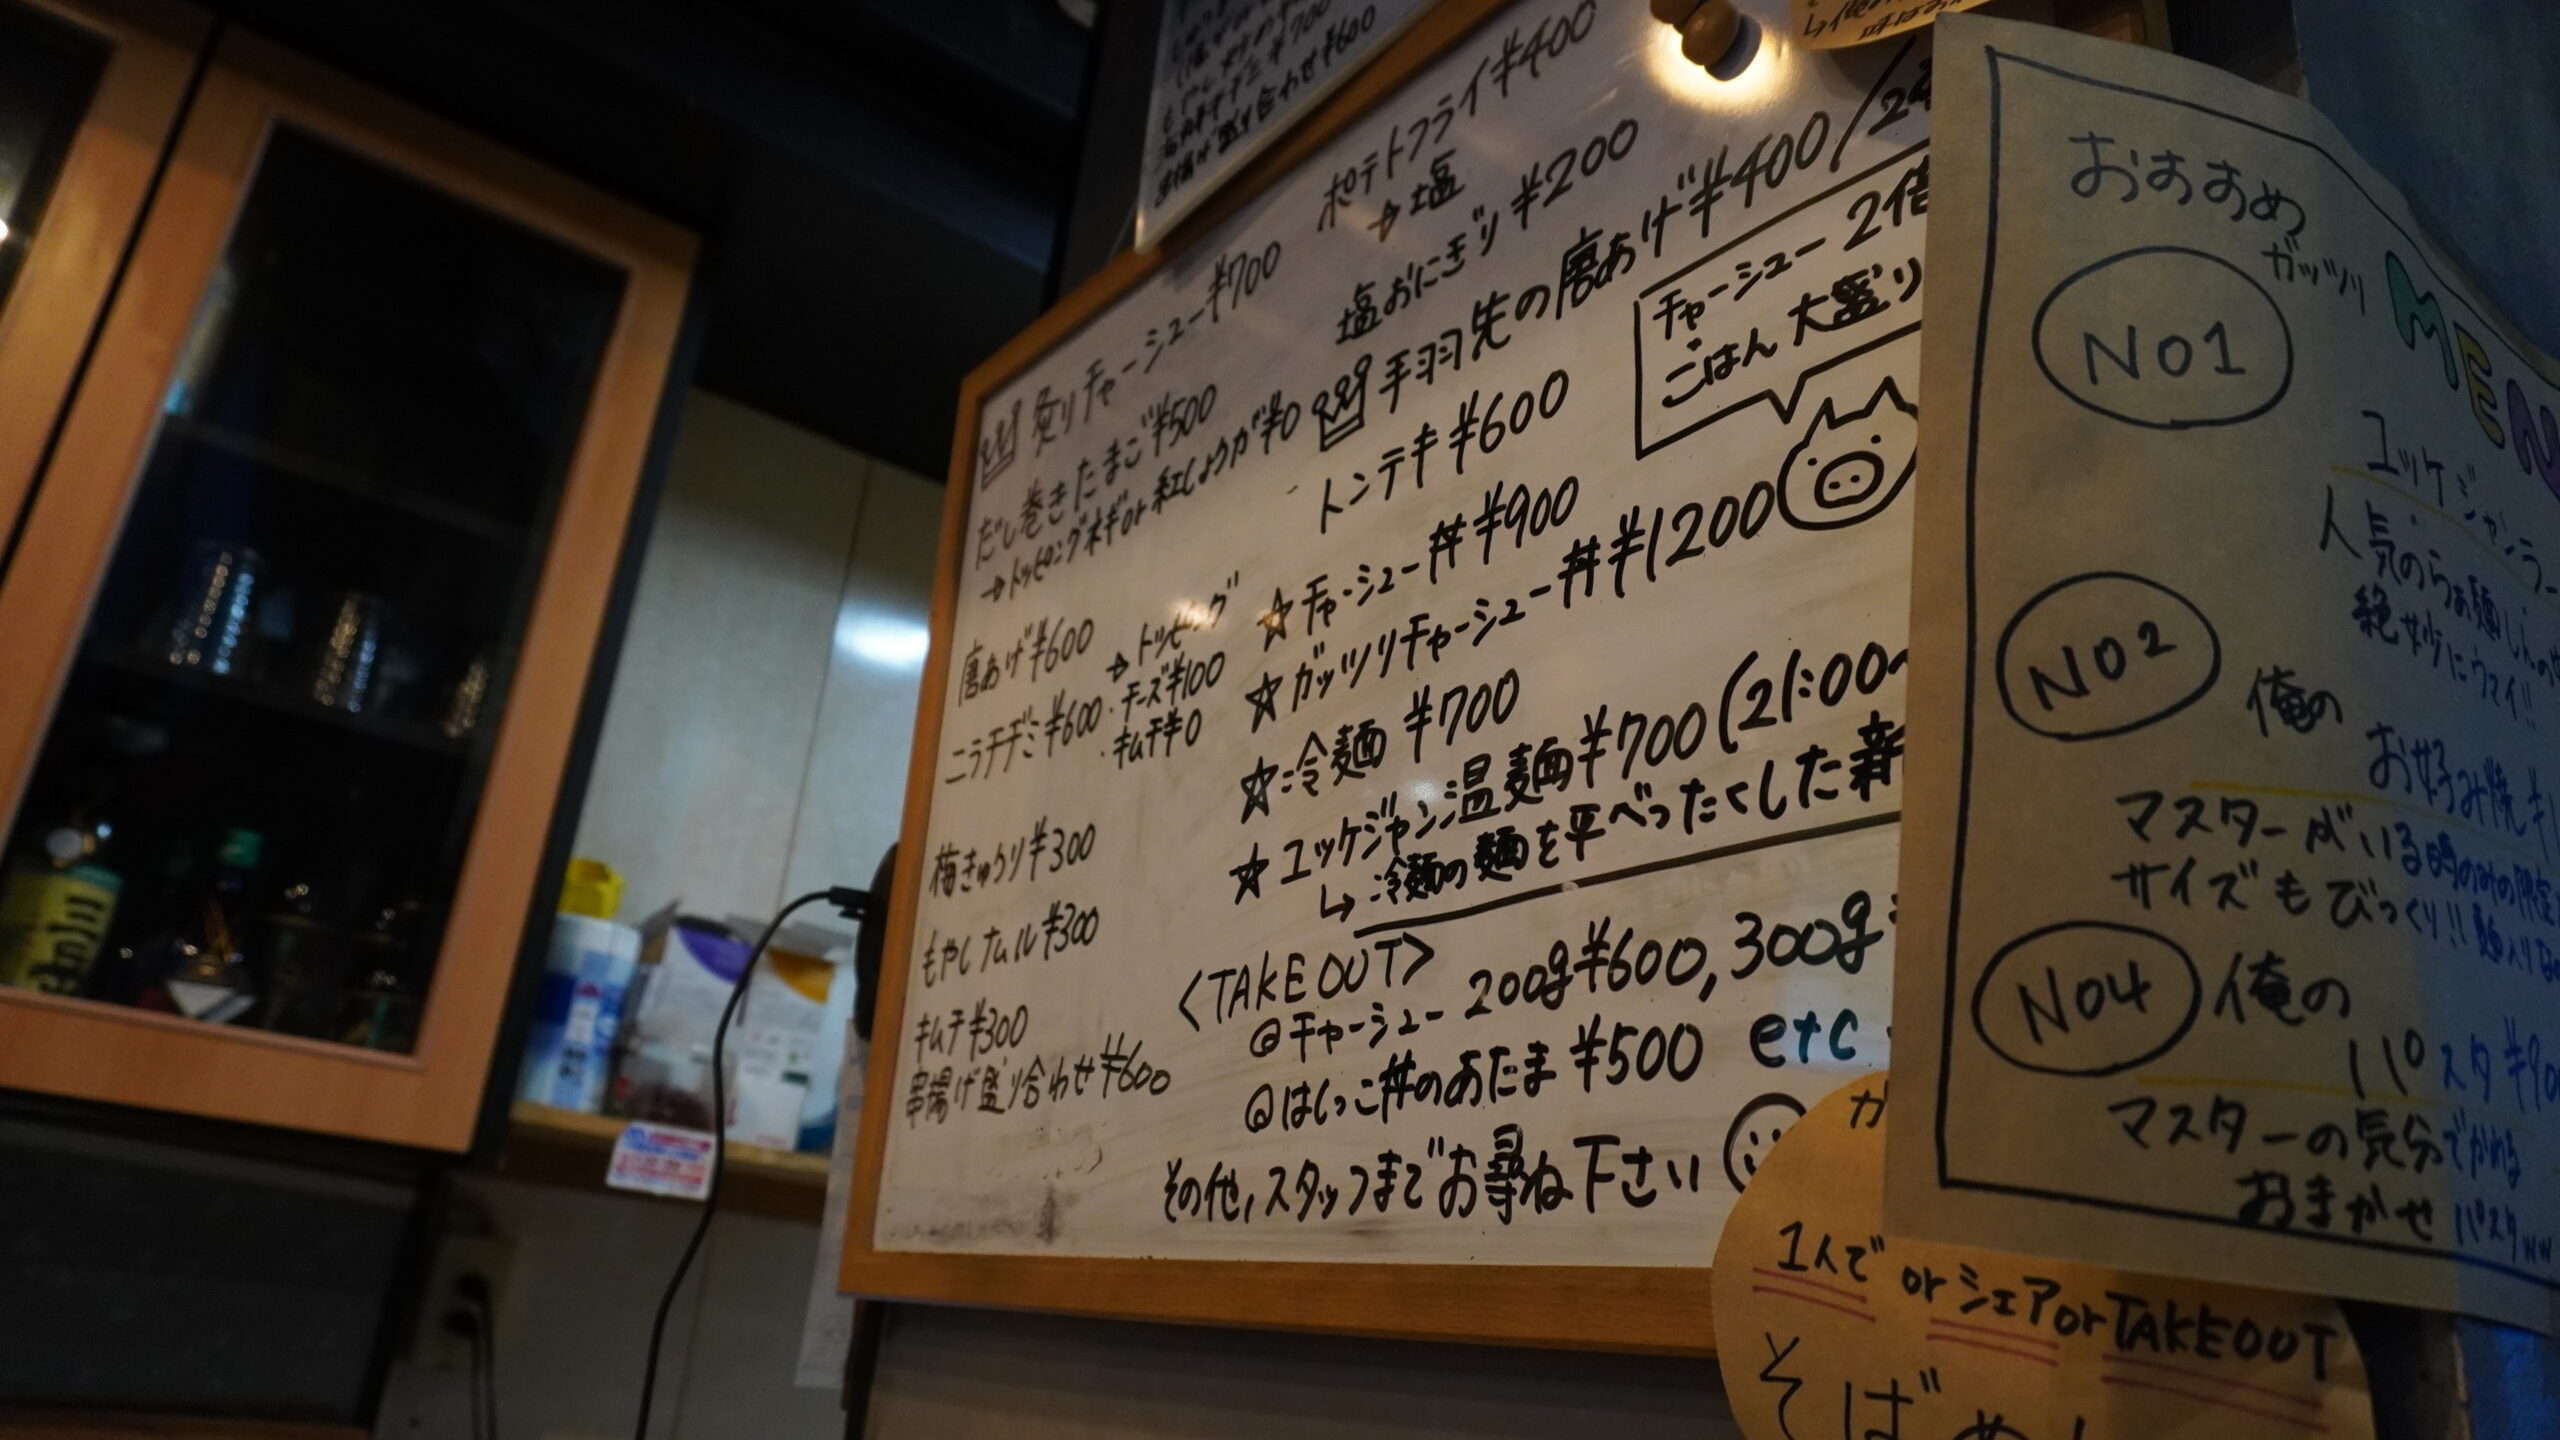 高菜チヂミ¥700
串揚げ盛り合わせ¥600
炙りチャーシュー¥700
だし巻きたまご¥500
→トッピングネギor紅しょうが¥0
唐あげ¥600
→トッピング
・チーズ¥100
・キムチ¥0
ニラチヂミ¥600
梅きゅうり¥300
もやしナムル¥300
キムチ¥300
串揚げ盛り合わせ¥600
ポテトフライ¥400
→塩
塩おにぎり¥200
手羽先の唐あげ¥400/2本
トンテキ¥600
☆チャーシュー丼¥900
☆ガッツリチャーシュー丼¥1200
チャーシュー2倍
ごはん大盛り
☆冷麺 ¥700
☆ユッケジャン温麺¥700(21:00〜
↳冷麺の麺を平べったくした新
<TAKE OUT>
@チャーシュー 200g¥600, 300g
@はしっこ丼のあたま ¥500 etc
その他,スタッフまでお尋ね下さい
MEN
おすすめ
NO1
ガッツリ
ユッケジャンラー
人気のらぁ麺
絶妙にウマイ!!
NO2
俺の
お好み焼き
マスターがいる時のみの限定
サイズもびっくり!! 麺入り
NO4
俺の
パスタ ¥90
マスターの気分でかわる
おまかせパスタww
1人で or シェア or TAKEOUT
そばめし